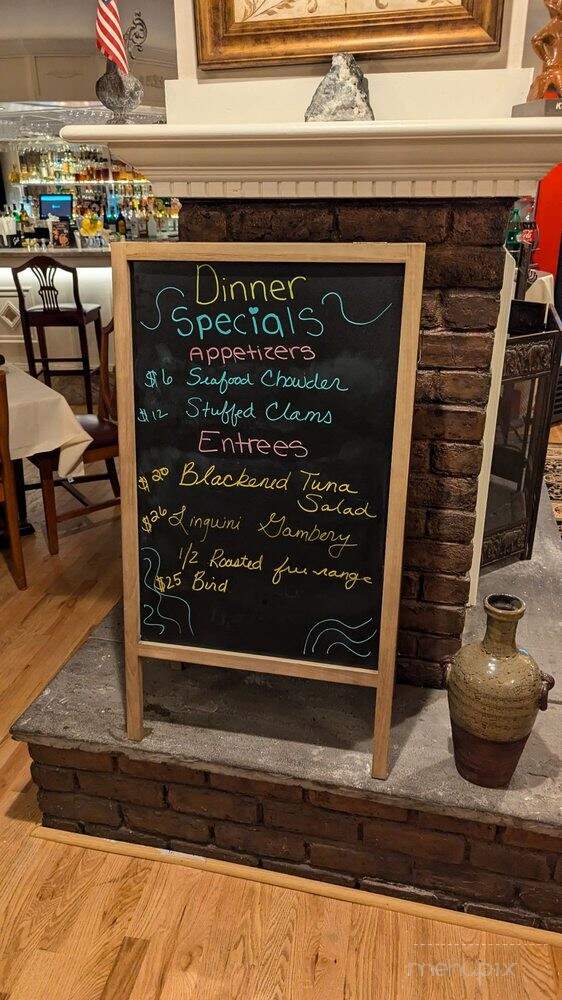 Dinner
Specials
Appetizers
$6 Seafood Chowder
$12 Stuffed Clams
Entrees
$20 Blackened Tuna
Salad
$26 Linguini Gambery
1/2 Roasted free-range
$25 Bird
menupix